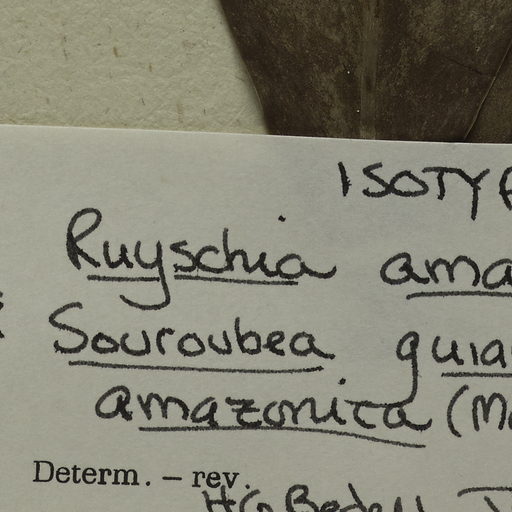 ISOTYP
Ruyschia ama
Souroubea guia
amazonica (Ma
Determ. – rev.
HG Bedell